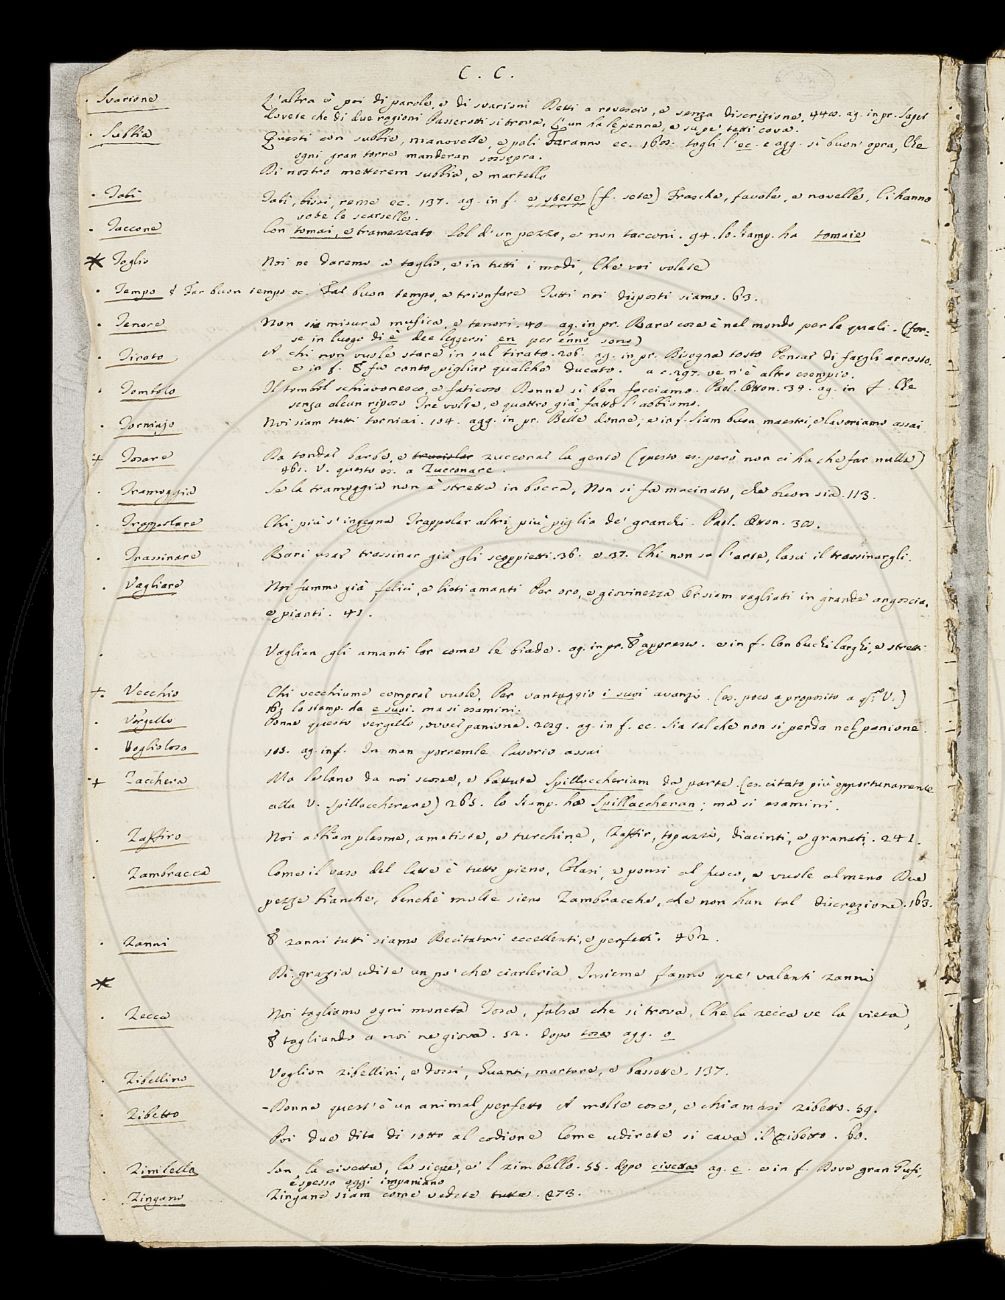 C. C.
Svarione L'altra è poi di parole, e di svarioni Detti a rovescio, e senza discrizione. 440. ag. in pr. Saper
Dovete che di due ragioni Passerotti si trova, L'un ha le penne, e su pe' tetti cova.
Subbia Questi con subbie, manovelle, e pali Faranno ec. 160. togli l'ec. e agg. si buon'opra, Che
ogni gran torre manderan sossopra.
Di nostro metterem subbia, e martello
Tabì Tabì, bissi, rense ec. 137. ag. in f. e sbete (f. sete) Frasche, favole, e novelle, Ci hanno
vote le scarselle.
Taccone Con tomai, e tramezzato Sol d'un pezzo, e non tacconi. 94. lo stamp. ha tomaie
Taglio Noi ne daremo a taglio, e in tutti i modi, Che voi volete
Tempo § Far buon tempo ec. Far buon tempo, e trionfare Tutti noi disposti siamo. 63.
Tenore Non sia misura musica, e tenori. 40. ag. in pr. Rare cose è nel mondo per le quali. (for-
se in luogo di è dee leggersi en per enno sono)
Tirato A chi non vuole stare in sul tirato. 206. ag. in pr. Bisogna tosto pensar di fargli arrosto.
e in f. E fa conto pigliar qualche ducato. a c. 297. ve n'è altro esempio.
Tombolo Il tombol schiavonesco, e faticoso Donne si ben facciamo. Paol. Otton. 39. ag. in f. Che
senza alcun riposo Tre volte, e quattro già fatto l'abbiamo.
Torniajo Noi siam tutti torniai. 104. agg. in pr. Belle donne, e in f. Siam buon maestri, e lavoriamo assai
Tosare Da tondar barbe, e zucconar la gente (questo es. però non ci ha che far nulla)
461. V. questo es. a Zucconare.
Tramoggia Se la tramoggia non è stretta in bocca, Non si fa macinato, che buon sia. 113.
Trappolare Chi più s'ingegna Trappolar altri, più piglia de' grandi. Paol. Otton. 30.
Trassinare Bari usar trassinar già gli scoppietti. 36. e 37. Chi non sa l'arte, lasci il trassinargli.
Vagliare Noi fummo già felici, e lieti amanti Per oro, e giovinezza Or siam vagliati in grande angoscia,
e pianti. 41.
Vaglian gli amanti lor come le biade. ag. in pr. E appresso. e in f. Con buchi larghi, e stretti
Vecchio Chi vecchiume comprar vuole, Per vantaggio i suoi avanzi. (es. poco a proposito a q.ta V.)
163 lo stamp. ha e suoi. ma si esamini.
Vergello Donne questo vergello, ov'è panione. 209. ag. in f. ec. Sia tal che non si perda nel panione
Voglioloso 103. ag. in f. In man porremle lavorio assai
Zacchera Ma se lana da noi scossa, e battuta Spillaccheriam da parte. (es. citato più opportunamente
alla V. Spillaccherare) 265. lo stamp. ha Spillaccheran; ma si esamini.
Zaffiro Noi abbiam plasme, amatiste, e turchine, Zaffir, topazzi, diacinti, e granati. 241.
Zambracca Come il vaso del latte è tutto pieno, Colasi, e ponsi al fuoco, e vuole almeno Due
pezze bianche, benchè molte sieno Zambracche, che non han tal discrezione. 163.
Zanni E zanni tutti siamo Recitatori eccellenti, e perfetti. 462.
Di grazia udite un po' che ciarleria Insieme fanno que' valenti zanni
Zecca Noi tagliamo ogni moneta Tosa, falsa che si trova, Che la zecca ve la vieta,
E tagliando a noi ne giova. 52. dopo tosa agg. o
Zibellino Voglion zibellini, e dossi, Guanti, martore, e bassette. 137.
Zibetto Donne quest'è un animal perfetto A molte cose, e chiamasi zibetto. 59.
Poi due dita di sotto al codione Come udirete si cava il zibetto. 60.
Zimbello Son la civetta, la siepe, e 'l zimbello. 55. dopo civetta ag. e. e in f. Dove gran gufi,
e spesso oggi impaniano
Zingano Zingane siam come vedete tutte. 273.